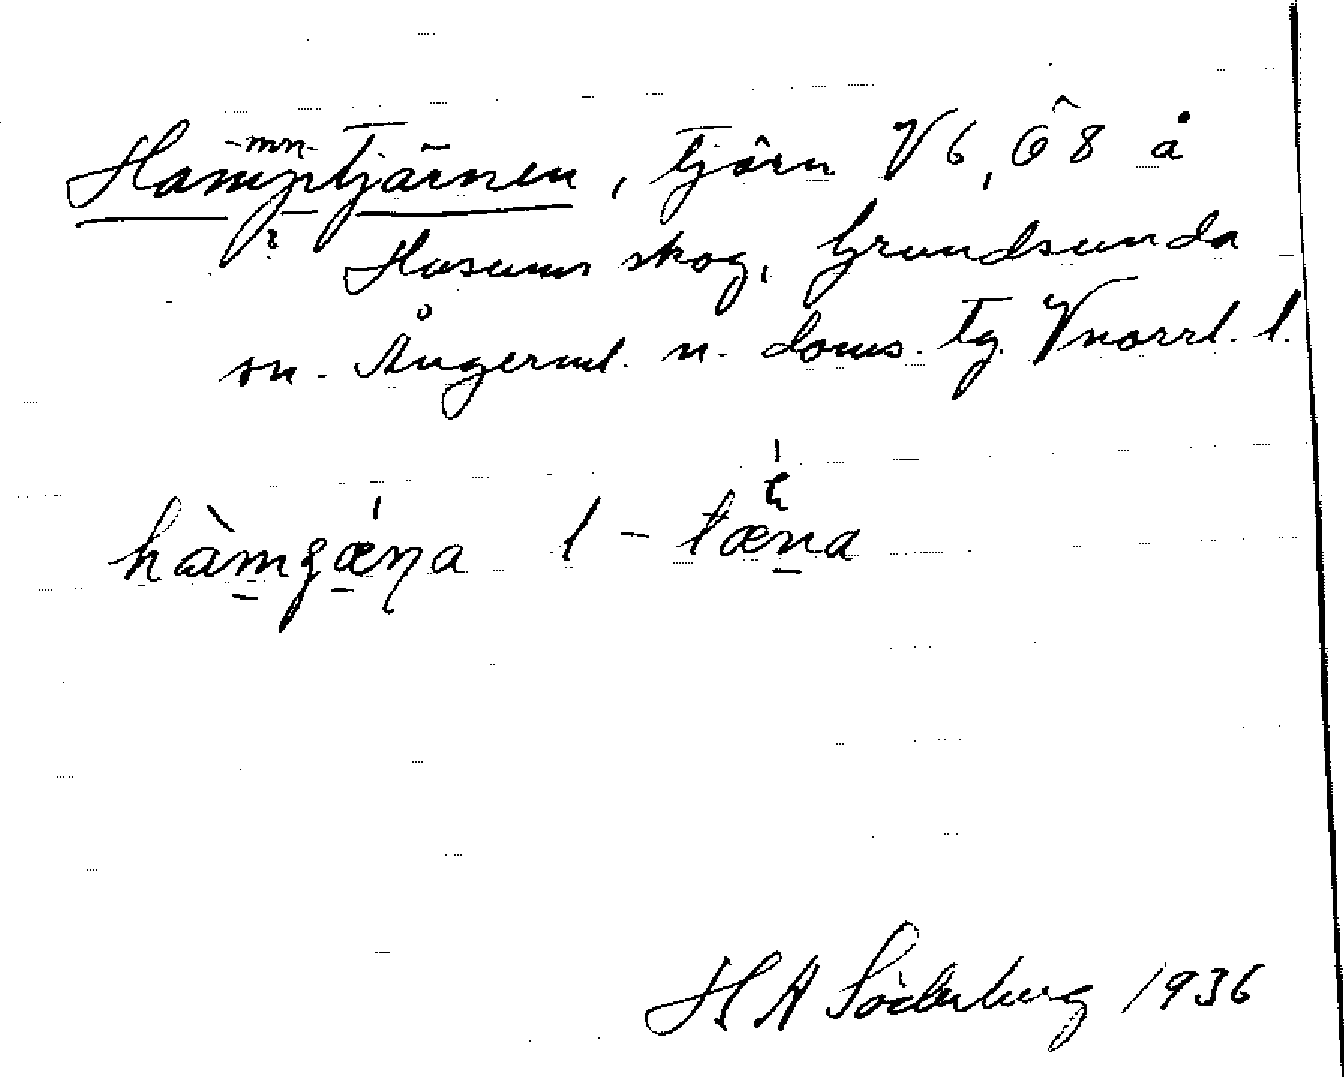 -mn-
Hamptjärnen, tjärn V6, Ö8 å
? Husums skog, Grundsunda
sn. Ångerml. n. doms. tg. Vnorrl. l.
hàmgæna l - tæna
H A Söderberg 1936